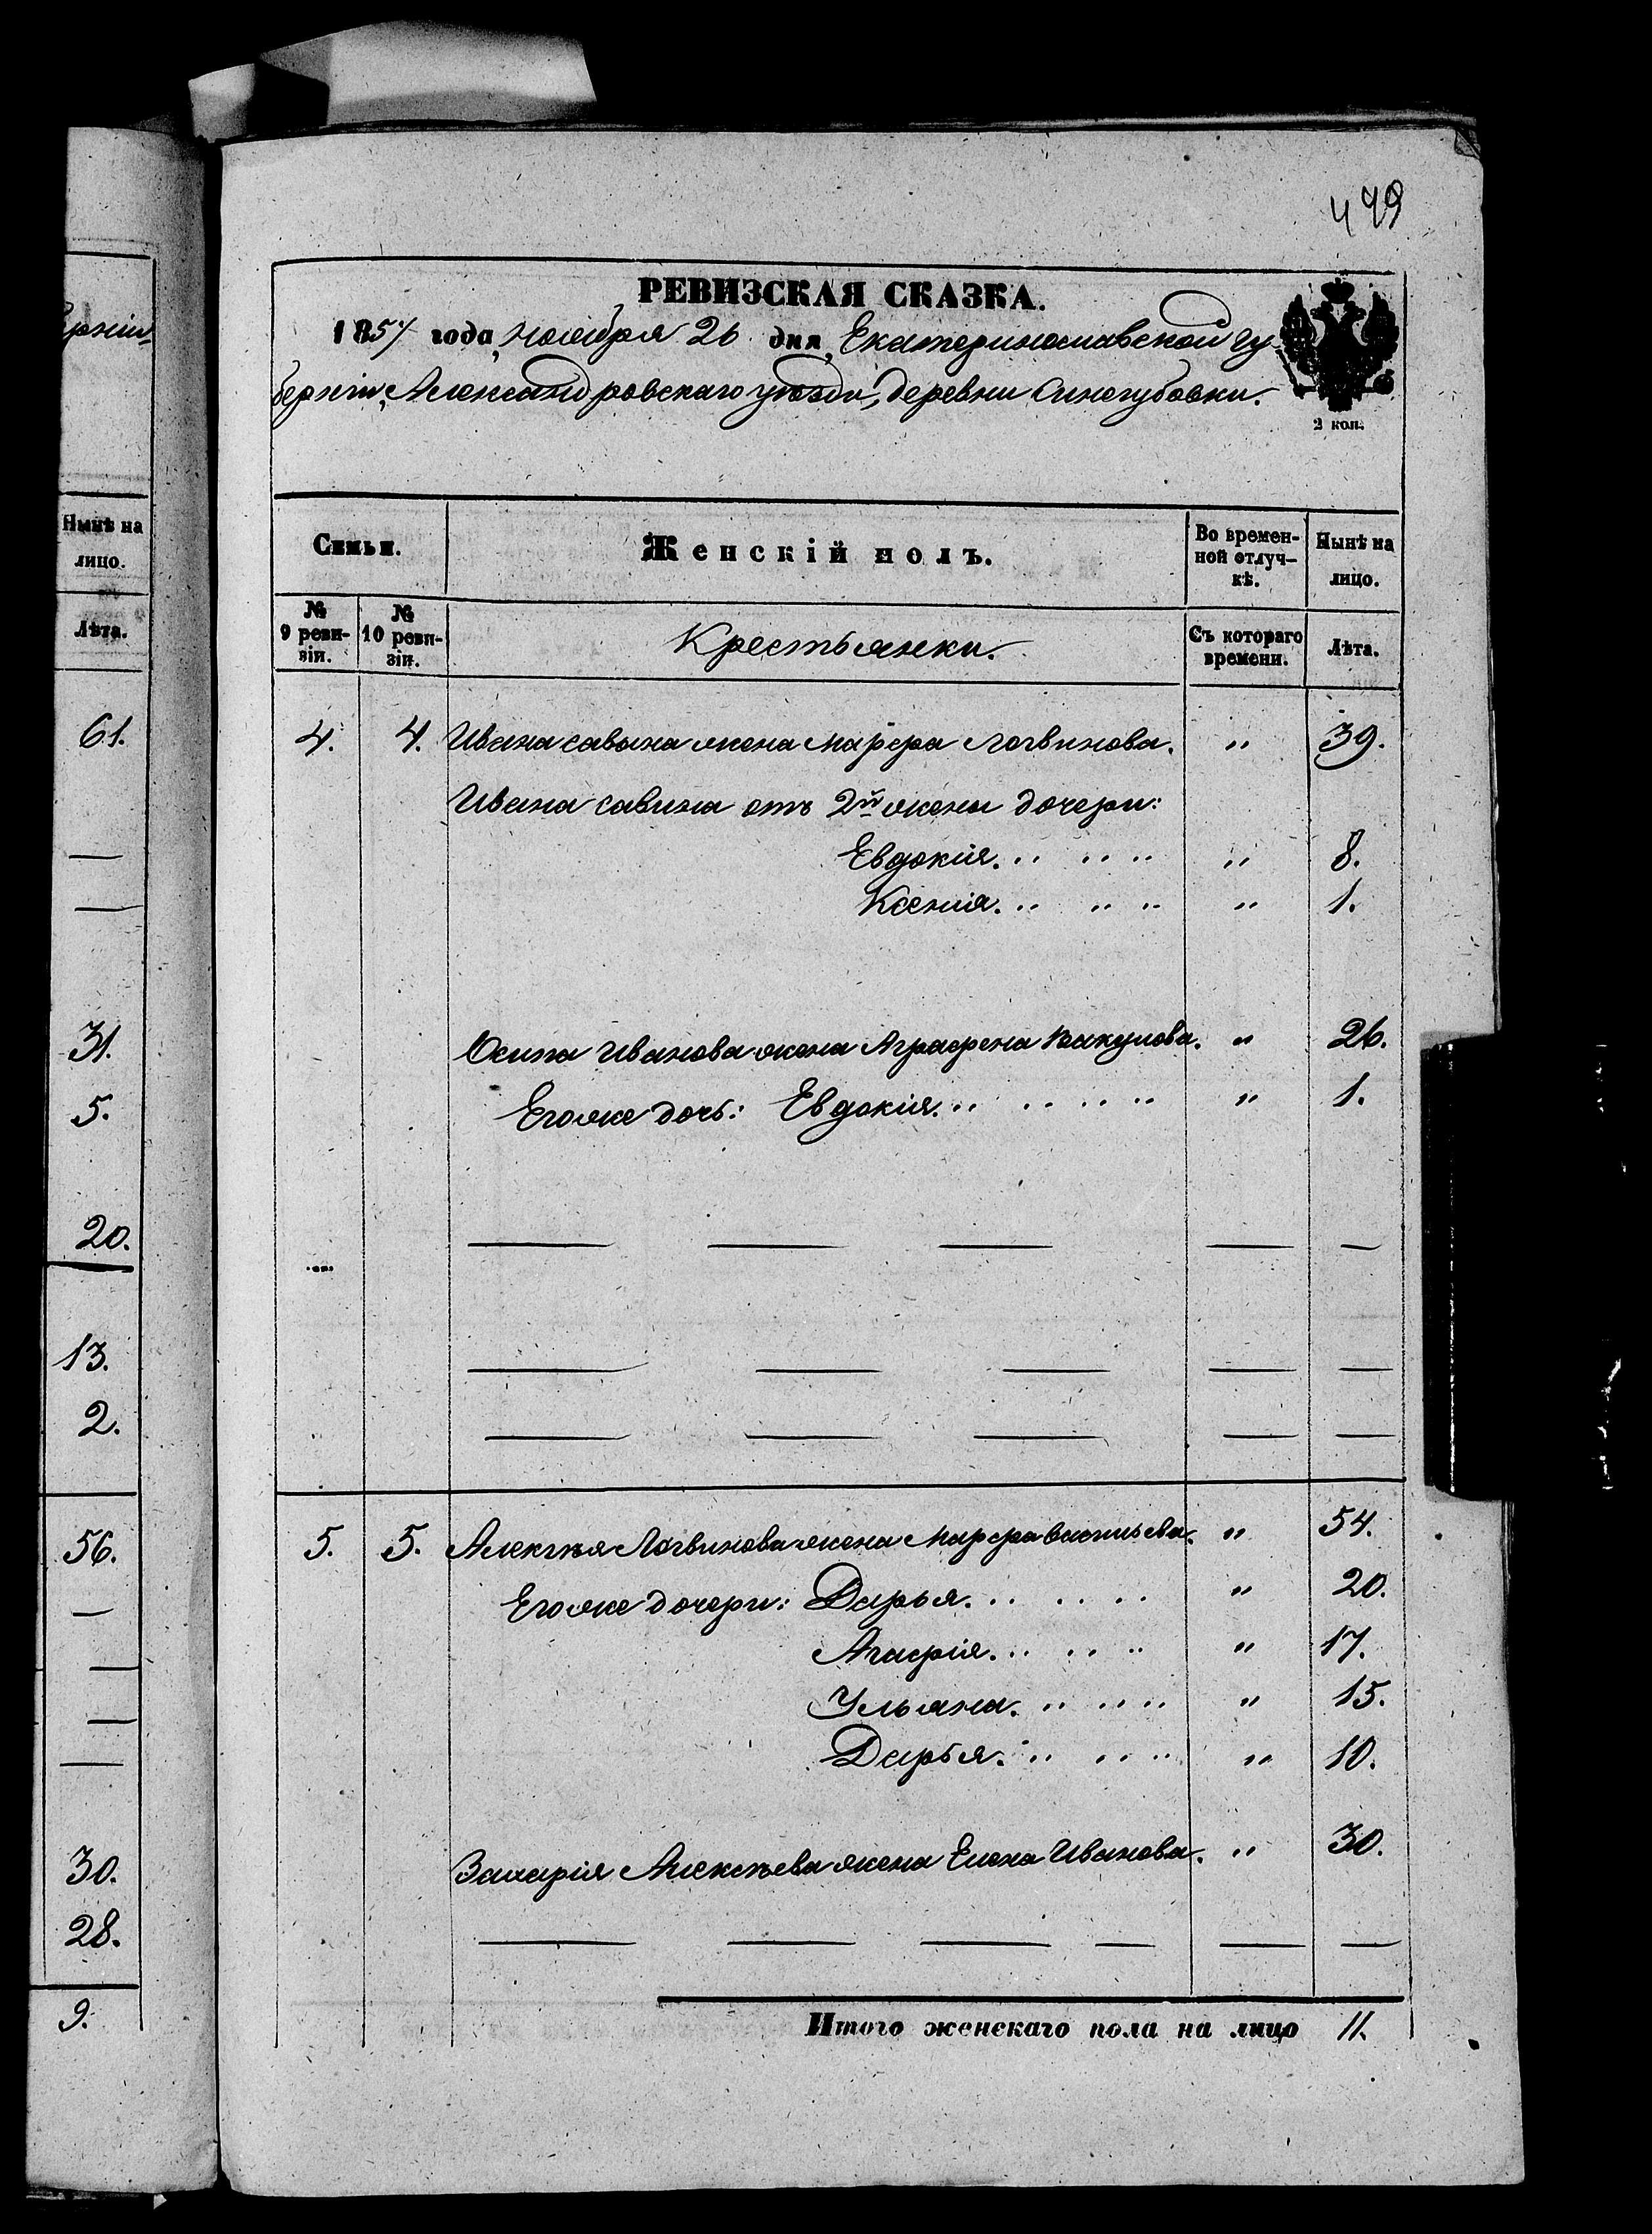 479
РЕВИЗСКАЯ СКАЗКА.
1857 года, ноября 26 дня, Екатеринославской гу-
берніи, Александровскаго уѣзда, деревни Синегубовки.
2 коп.
Семьи.
Женскій полъ.
Во времен-
ной отлуч-
кѣ.
Нынѣ на
лицо.
№
9 реви-
зіи.
№
10 реви-
зіи.
Крестьянки.
Съ котораго
времени.
Лѣта.
4. 4. Ивана Савина жена Марфа Логвинова. " 39.
Ивана Савина отъ 2й жены дочери:
Евдокія. .. .. .. " 8.
Ксенія. .. .. .. " 1.
Осипа Иванова жена Аграфена Вакулова. " 26.
Егоже дочь: Евдокія. .. .. .. .. " 1.
5. 5. Алексѣя Логвинова жена Марфа Васильева. " 54.
Егоже дочери: Дарья. .. .. .. " 20.
Агафія. .. .. .. " 17.
Ульяна. .. .. .. " 15.
Дарья. .. .. .. " 10.
Захарія Алексѣева жена Елена Иванова. " 30.
Итого женскаго пола на лицо 11.
Нынѣ на
лицо.
Лѣта.
61.
31.
5.
20.
13.
2.
56.
30.
28.
9.